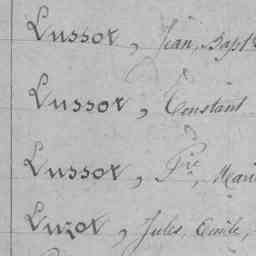 Lussot, Jean, Bapt
Lussot, Constant
Lussot, Pre, Mari
Luzot, Jules, Emile,